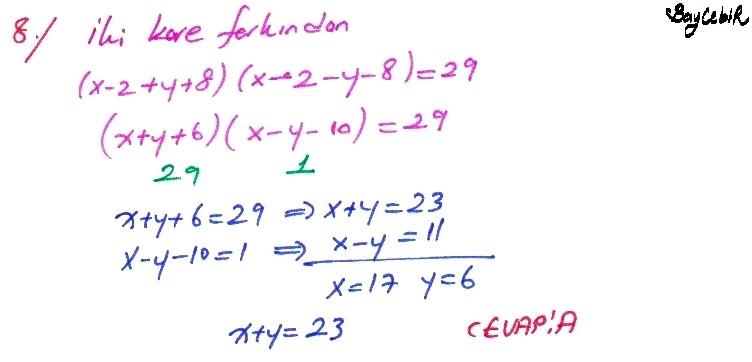 BayCebiR
8./ iki kare farkından
(x-2+y+8)(x-2-y-8)=29
(x+y+6)(x-y-10)=29
29 1
x+y+6=29 ⇒ x+y=23
x-y-10=1 ⇒ x-y=11
x=17 y=6
x+y=23 CEVAP:A